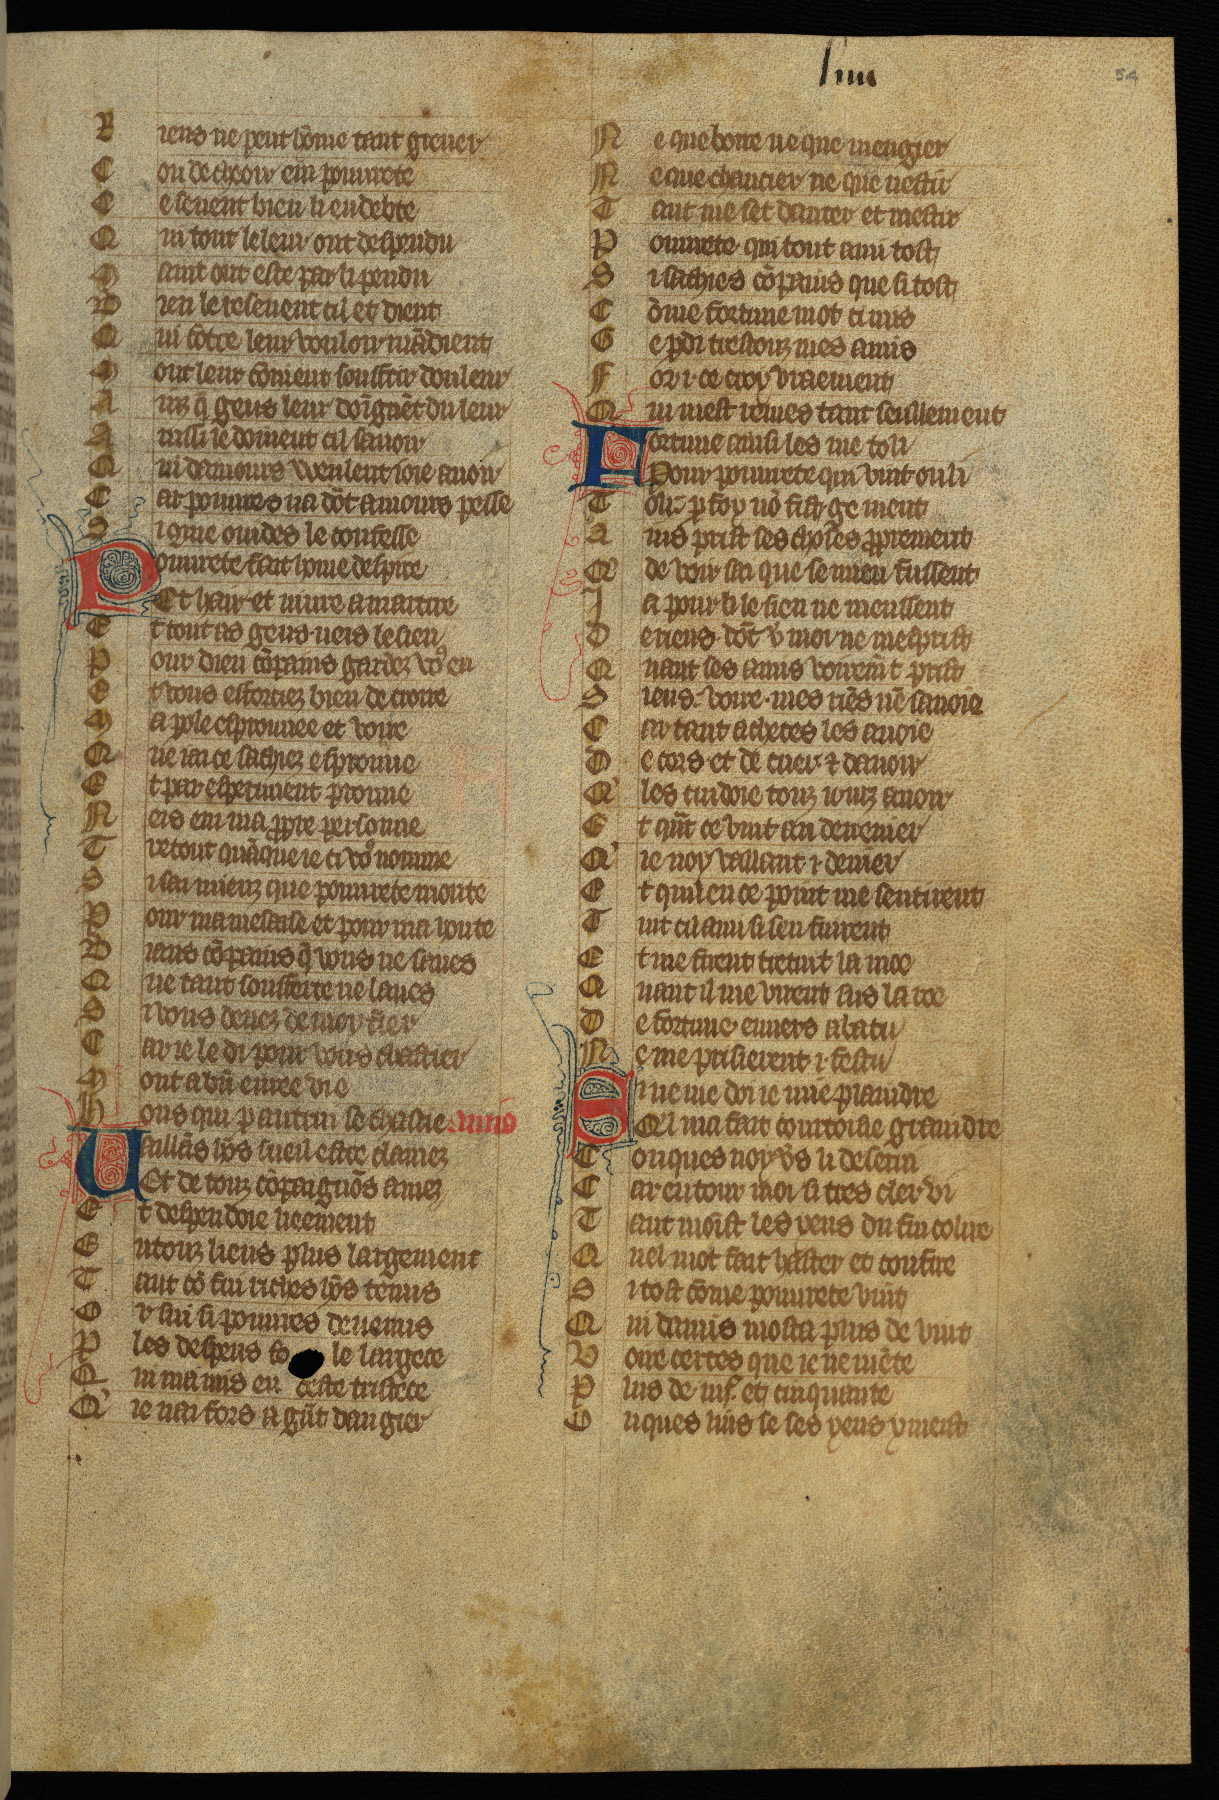 liiii
54
Riens ne peut hōme tant greuer
Con de cheoir em pouurete
Ce seuent bien li endebte
Qui tout le leur ont despendu
Maint ont este par li pendu
Bien le reseuent cil et dient
Qui cōtre leur vouloir mādient
Mout leur cōuient souffrir douleur
Ainz q̄ gens leur doīgnēt du leur
Ausi le doiuent cil sauoir
Qui damours veulent ioie auoir
Car poures na dōt amours pesse
Si cōme ouides le confesse
Pouurete fait hōme despire
Et hair et uiure a martire
Et tout as gens neis le sen
Pour dieu cōpains gardez vo9 en
Et vous efforciez bien de croire
Ma pole esprouuee et voire
Que iai ce sachiez esprouue
Et par experiment prouue
Neis em ma ppre personne
Tretout quāque ie ci vo9 nomme
Si sai mieuz que pouurete monte
Pour ma mesaise et pour ma honte
Biaus cōpains q̄ vous ne saues
Que tant soufferte ne laues
Si vous deuez de moy fier
Car ie le di pour vous chastier
Mout a bn̄ euree vie
Hons qui p autrui se chastie amis
Uaillās hōs sueil estre clamez
Et de touz cōpaignōs amez
Et despendoie lieement
En touz liens plus largement
Tant cō fui riches hōs tenus
Or sui si pouures deuenus
Ples despens fo le largece
Qui ma mis en ceste tristece
Q' ie nai fors a grāt dangier
Ne que boire ne que mengier
Ne que chaucier ne que uestir
Tant me set danter et mestir
Pouurete qui tout ami tost
Si sachies cōpains que si tost
Cōme fortune mot ci mis
Ge pdi trestouz mes amis
Fors .i. ce croy vraiement
Qui mest remes tant seullement
Fortune ainsi les me toli
Pour pouurete qui vint o li
Toli p foy nō fist ge ment
Ains prist ses choses pprement
Q' de voir sai que se mien fussent
Ja pour li le sien ne meussent
De riens dōt vs moi ne mesprist
Quant ses amis voiremt prist
Siens voire mes riēs nē sauoie
Car tant achetes les auoie
De cors et de cuer & dauoir
Q' les cuidoie touz iourz auoir
Et qūt ce vint au derrenier
Q' ie noy vaillant .i. denier
Et quāt en ce point me sentirent
Tuit cil ami si sen fuirent
Et me firent tretuit la moe
Quant il me virent sus la roe
De fortune enuers abatu
Ne me prisierent .i. festu
Si ne me doi ie mie plaindre
Qel ma fait courtoisie graindre
Conques noy vs li deserui
Car entour moi si tres cler vi
Tant moist les yeus du fin colire
Quel mot fait baster et confire
Si tost cōme pouurete vint
Qui damis mosta plus de vint
Voire certes que ie ne mēte
Plus de iiij.c et cinquante
Onques luis se ses yeus y meist